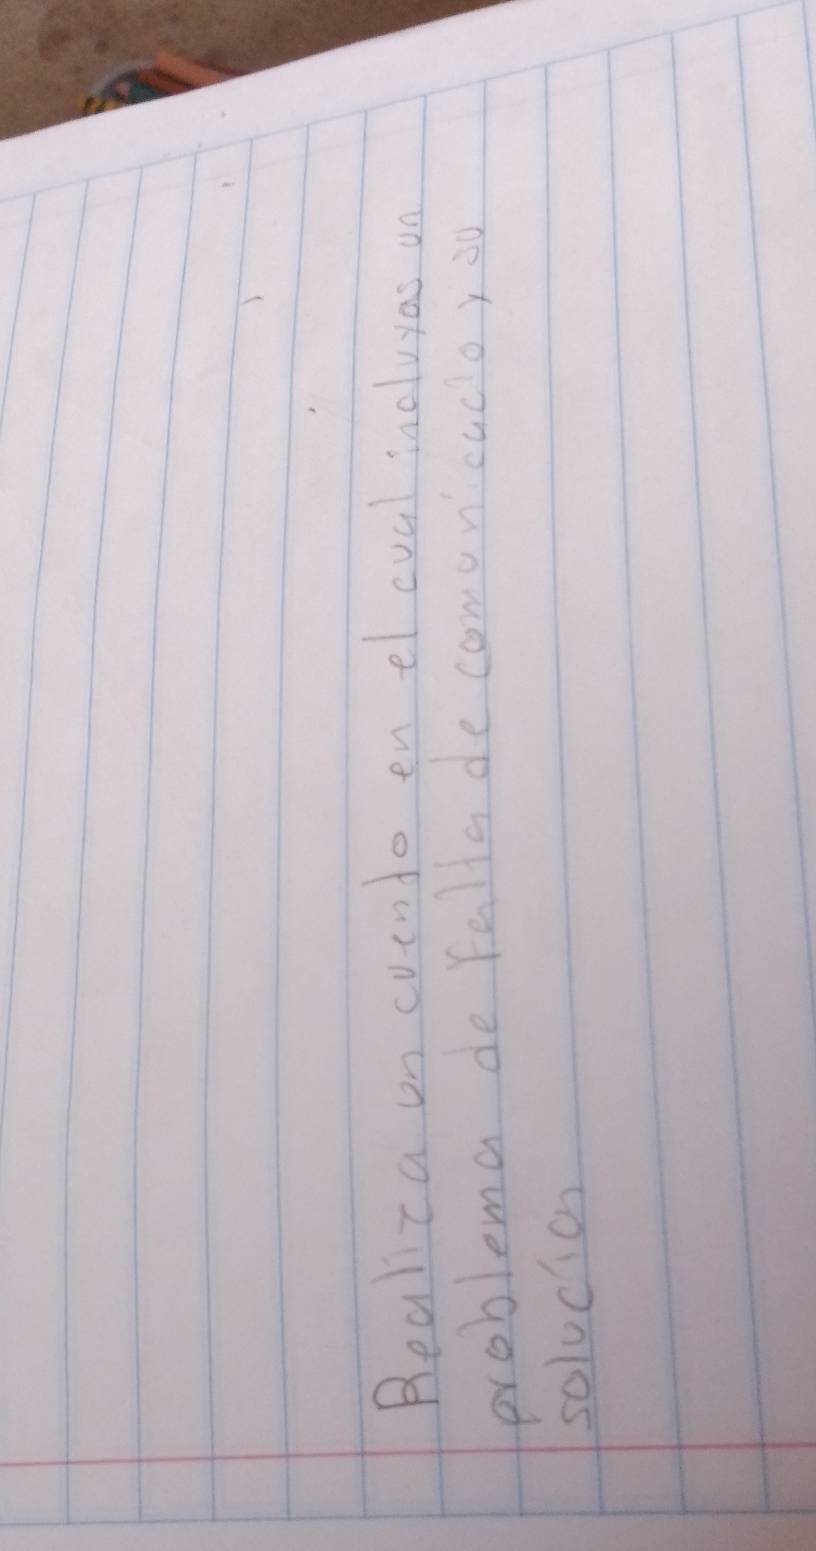 Realiza un cuento en el cual incluyas un
problema de falta de comunicacio y su
solucion